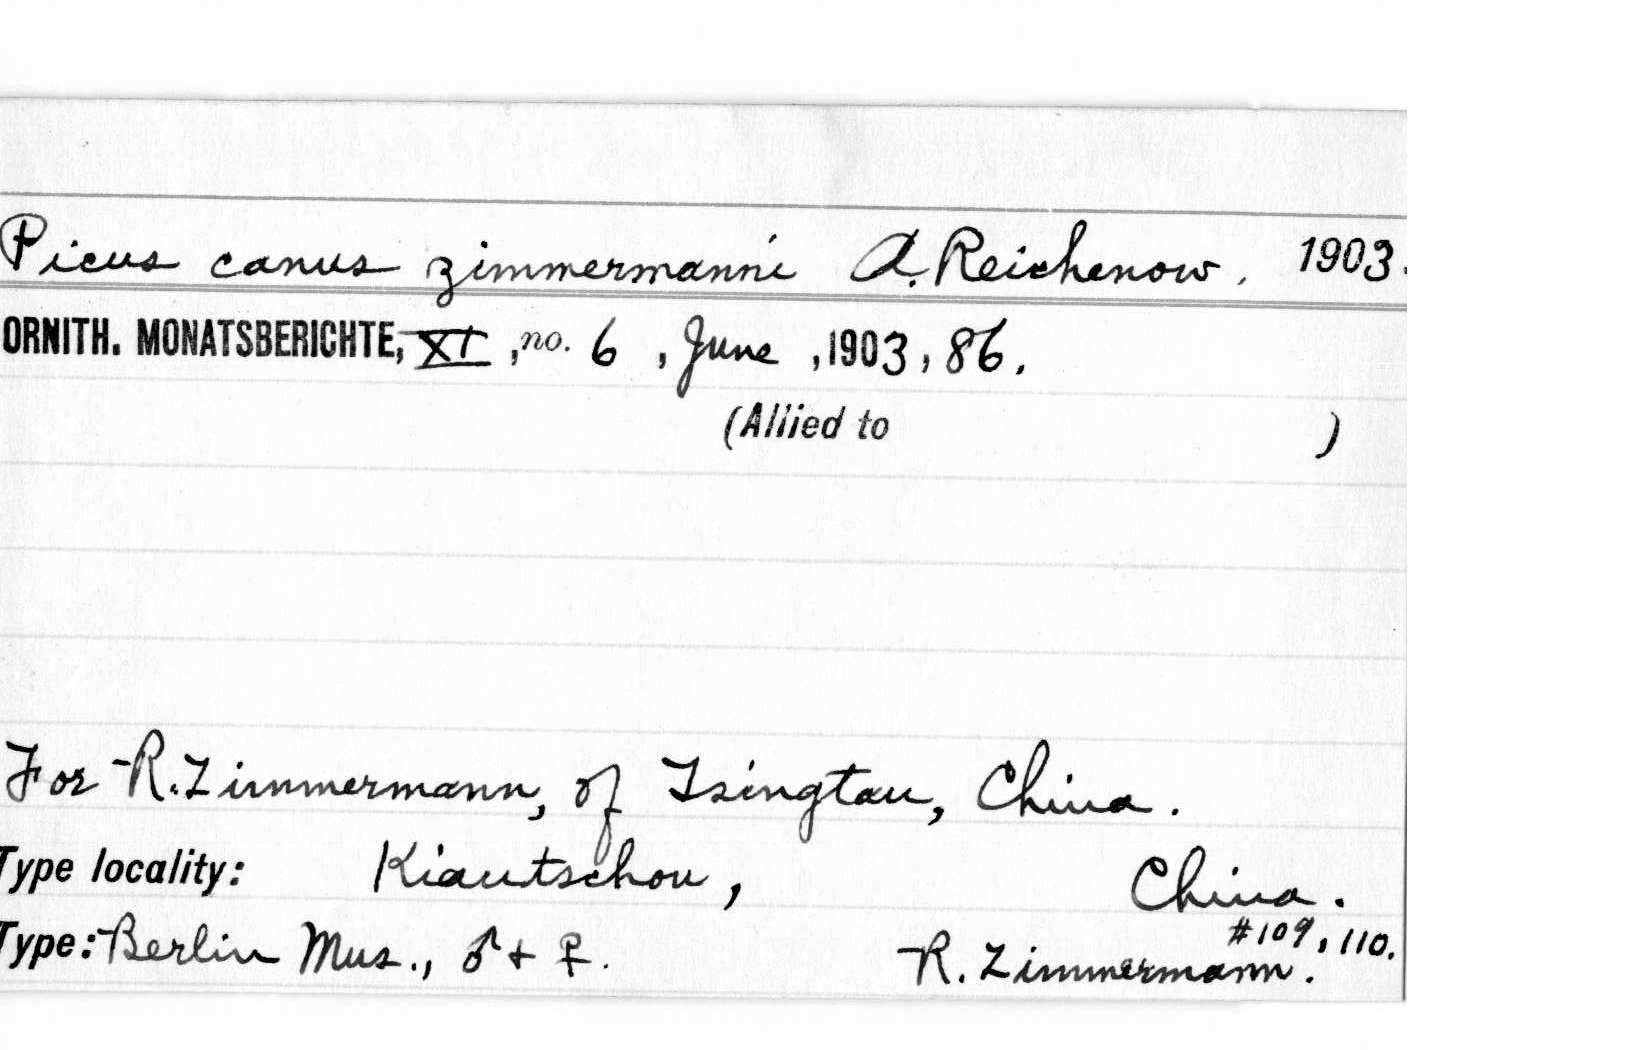 Picus canus zimmermanni A. Reichenow, 1903.
ORNITH. MONATSBERICHTE, XI, no. 6, June, 1903, 86.
(Allied to )
For R. Zimmermann, of Tsingtau, China.
Type locality: Kiautschou, China.
#109, 110.
Type: Berlin Mus., ♂ + ♀. R. Zimmermann.